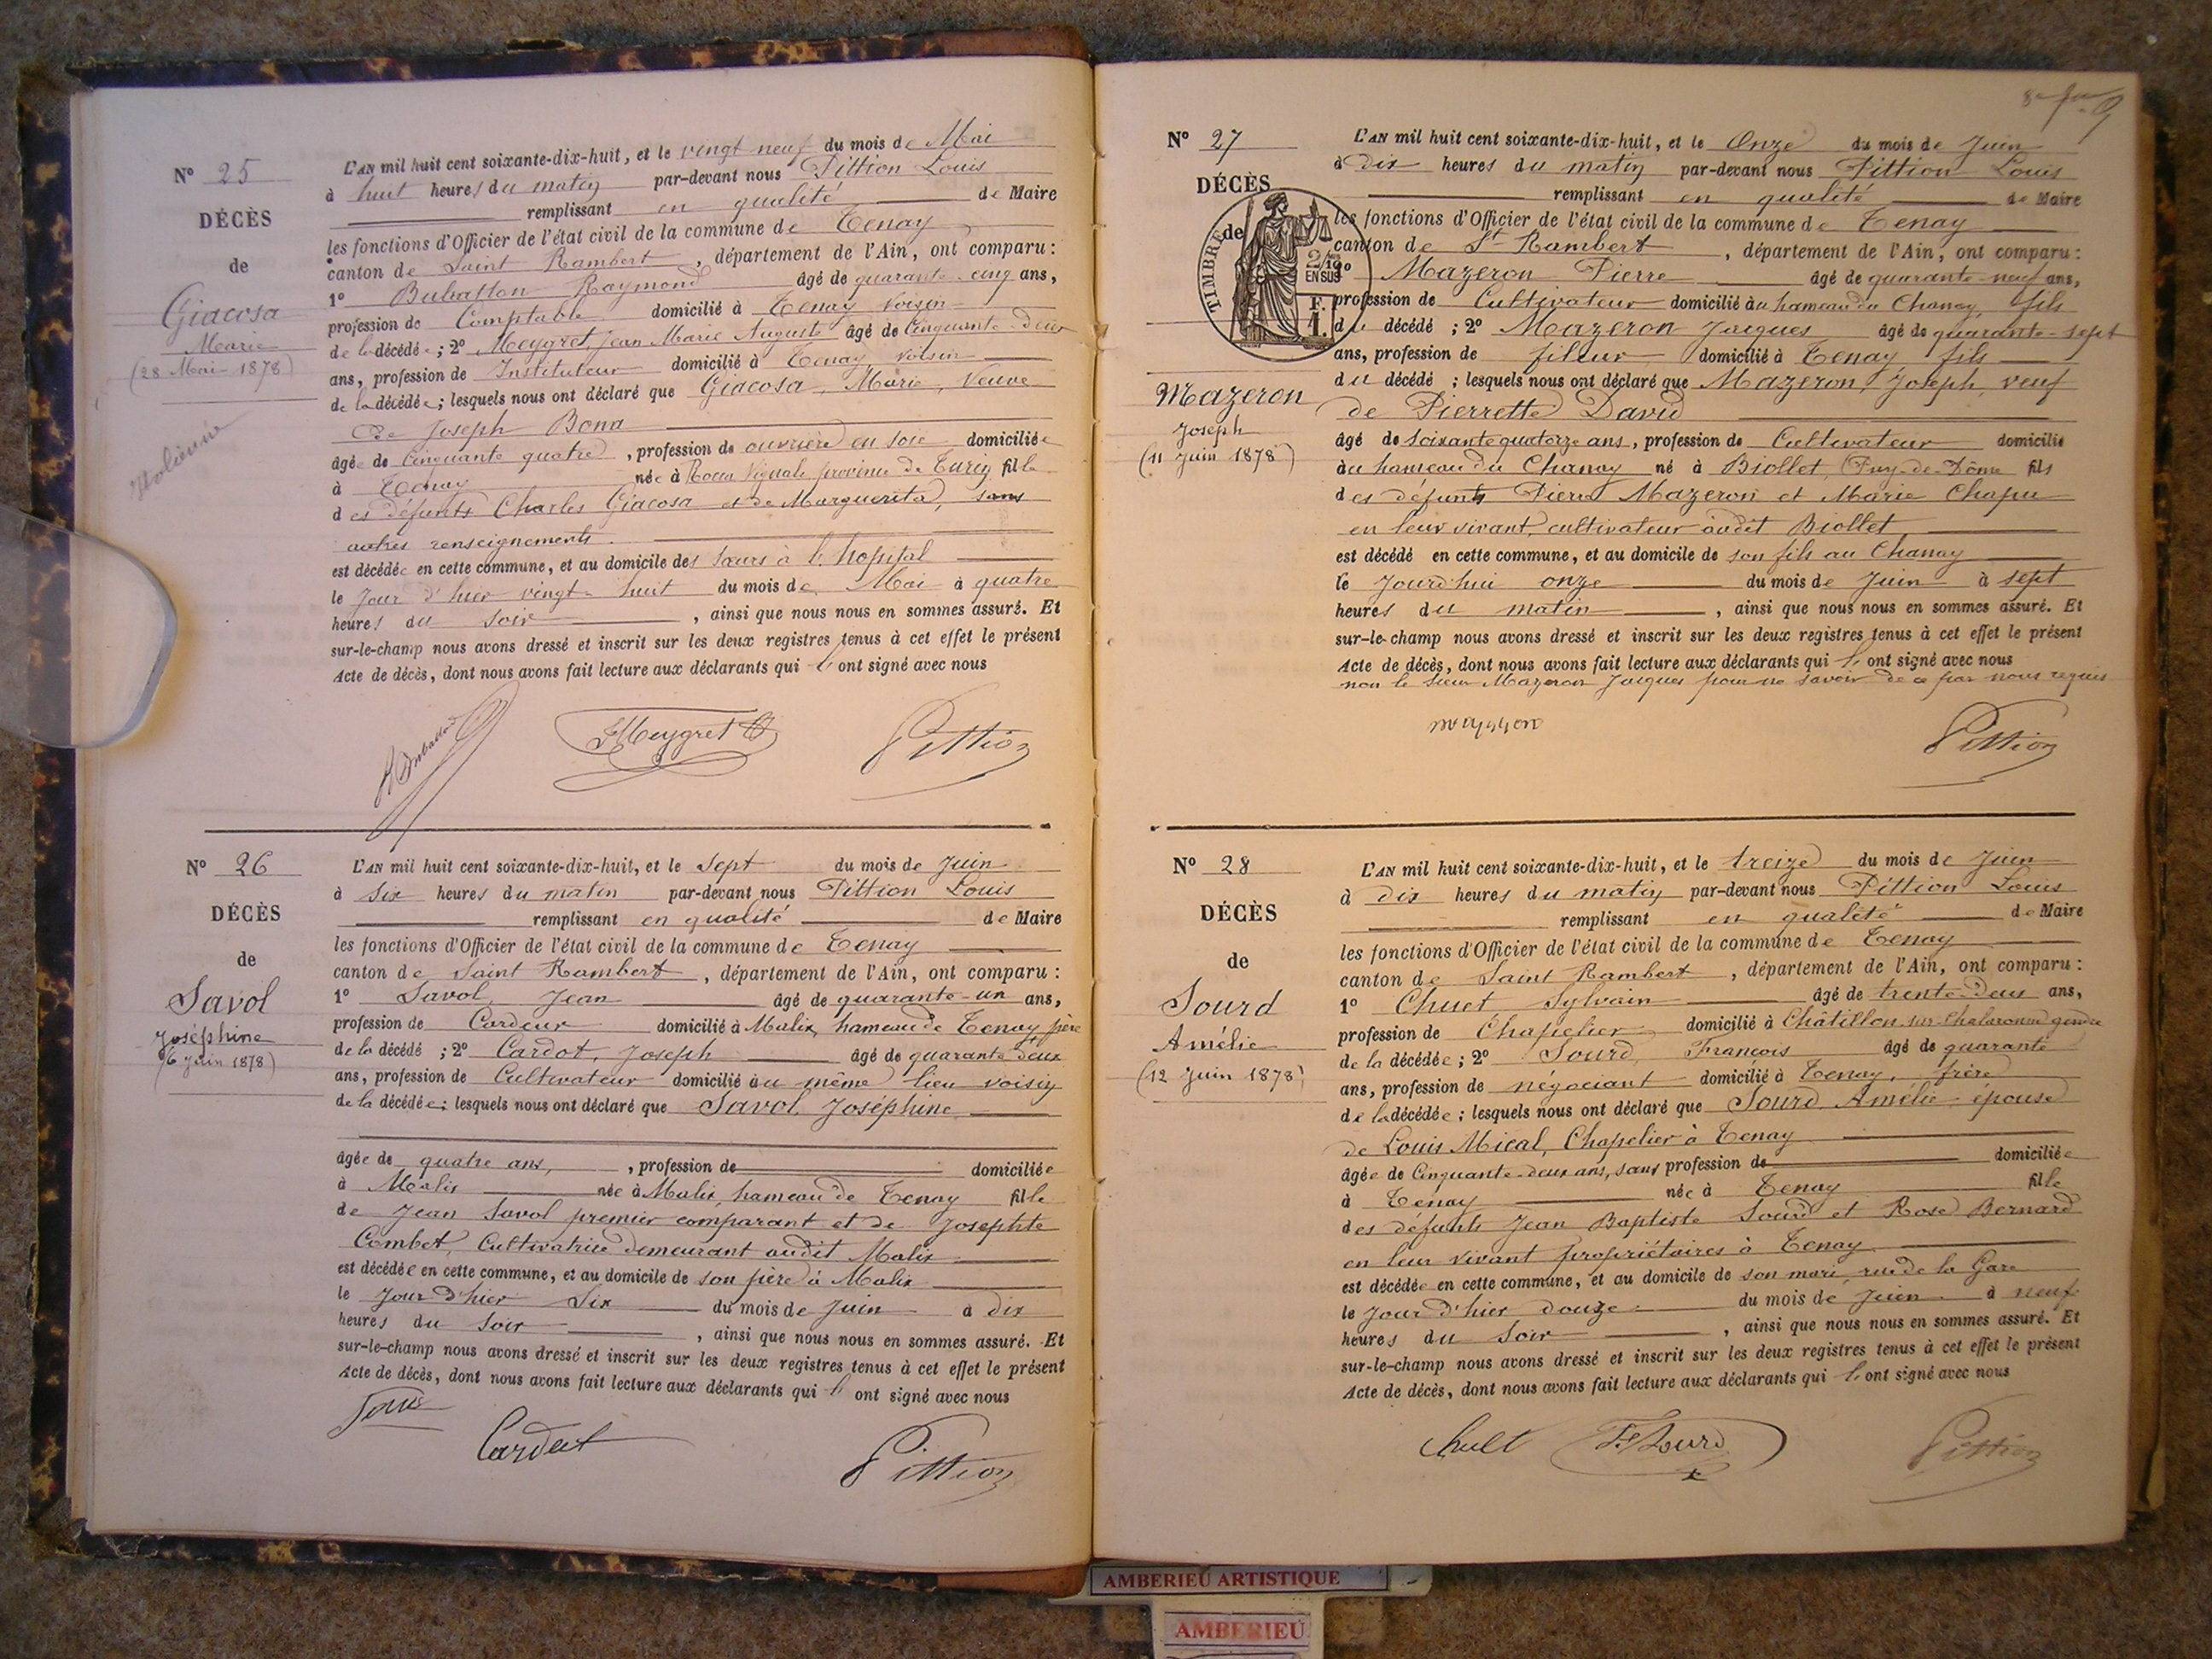 Nº 25
DÉCÈS
de
Giacosa
Marie
(28 Mai 1878)
Italienne
L'AN mil huit cent soixante-dix-huit, et le vingt neuf du mois de Mai
à huit heures du matin par-devant nous Pittion Louis
remplissant en qualité de Maire
les fonctions d'Officier de l'état civil de la commune de Tenay
canton de Saint Rambert, département de l'Ain, ont comparu:
1º Bubatton Raymond âgé de quarante-cinq ans,
profession de Comptable domicilié à Tenay voisin
de la décédée; 2º Meygret, Jean Marie Auguste âgé de Cinquante-Deux
ans, profession de Instituteur domicilié à Tenay, voisin
de la décédée; lesquels nous ont déclaré que Giacosa, Marie, Veuve
de Joseph Bona
âgée de Cinquante quatre, profession de ouvrière en soie domiciliée
à Tenay née à Rocca Vignale province de Turin fille
des défunts Charles Giacosa et de Marguerita, sans
autres renseignements.
est décédée en cette commune, et au domicile des Sœurs à l'hopital
le jour d'hier vingt-huit du mois de Mai à quatre
heures du soir, ainsi que nous nous en sommes assuré. Et
sur-le-champ nous avons dressé et inscrit sur les deux registres tenus à cet effet le présent
Acte de décès, dont nous avons fait lecture aux déclarants qui l'ont signé avec nous
Meygret Pittion
Nº 26
DÉCÈS
de
Savol
Joséphine
(6 Juin 1878)
L'AN mil huit cent soixante-dix-huit, et le Sept du mois de Juin
à six heures du matin par-devant nous Pittion Louis
remplissant en qualité de Maire
les fonctions d'Officier de l'état civil de la commune de Tenay
canton de Saint Rambert, département de l'Ain, ont comparu:
1º Savol, Jean âgé de quarante-un ans,
profession de Cardeur domicilié à Malix, hameau de Tenay père
de la décédé; 2º Cardot, Joseph âgé de quarante deux
ans, profession de Cultivateur domicilié au même lieu voisin
de la décédée; lesquels nous ont déclaré que Savol Joséphine
âgée de quatre ans, profession de domiciliée
à Malix née à Malix, hameau de Tenay fille
de Jean Savol premier comparant et de Josephte
Combet, Cultivatrice demeurant audit Malix
est décédée en cette commune, et au domicile de son père à Malix
le Jour d'hier Six du mois de Juin à dix
heures du soir, ainsi que nous nous en sommes assuré. Et
sur-le-champ nous avons dressé et inscrit sur les deux registres tenus à cet effet le présent
Acte de décès, dont nous avons fait lecture aux déclarants qui l'ont signé avec nous
Cardot Pittion
Nº 27
DÉCÈS
de
TIMBRE
2/10 EN SUS
F.
1.
Mazeron
Joseph
(11 Juin 1878)
L'AN mil huit cent soixante-dix-huit, et le Onze du mois de Juin
à Dix heures du matin par-devant nous Pittion Louis
remplissant en qualité de Maire
les fonctions d'Officier de l'état civil de la commune de Tenay
canton de St Rambert, département de l'Ain, ont comparu:
1º Mazeron Pierre âgé de quarante-neuf ans,
profession de Cultivateur domicilié au hameau du Chanay, fils
du décédé; 2º Mazeron Jacques âgé de quarante-sept
ans, profession de fileur domicilié à Tenay fils
du décédé; lesquels nous ont déclaré que Mazeron, Joseph, veuf
de Pierrette David
âgé de Soixante quatorze ans, profession de Cultivateur domicilié
au hameau du Chanay né à Biollet, Puy-de-Dôme fils
des défunts Pierre Mazeron et Marie Chapu
en leur vivant, cultivateur audit Biollet
est décédé en cette commune, et au domicile de son fils au Chanay
le Jourd'hui onze du mois de Juin à sept
heures du matin, ainsi que nous nous en sommes assuré. Et
sur-le-champ nous avons dressé et inscrit sur les deux registres tenus à cet effet le présent
Acte de décès, dont nous avons fait lecture aux déclarants qui l'ont signé avec nous
non le sieur Mazeron Jacques pour ne savoir de ce par nous requis
Pittion
Nº 28
DÉCÈS
de
Sourd
Amélie
(12 Juin 1878)
L'AN mil huit cent soixante-dix-huit, et le treize du mois de Juin
à dix heures du matin par-devant nous Pittion Louis
remplissant en qualité de Maire
les fonctions d'Officier de l'état civil de la commune de Tenay
canton de Saint Rambert, département de l'Ain, ont comparu:
1º Chuet Sylvain âgé de trente-Deux ans,
profession de Chapelier domicilié à Châtillon-sur-Chalaronne gendre
de la décédée; 2º Sourd, François âgé de quarante
ans, profession de négociant domicilié à Tenay, frère
de la décédée; lesquels nous ont déclaré que Sourd, Amélie, épouse
de Louis Mical, Chapelier à Tenay
âgée de Cinquante-deux ans, sans profession de domiciliée
à Tenay née à Tenay fille
des défunts Jean Baptiste Sourd et Rose Bernard
en leur vivant propriétaires à Tenay
est décédée en cette commune, et au domicile de son mari, rue de la Gare
le Jour d'hier douze du mois de Juin à neuf
heures du Soir, ainsi que nous nous en sommes assuré. Et
sur-le-champ nous avons dressé et inscrit sur les deux registres tenus à cet effet le présent
Acte de décès, dont nous avons fait lecture aux déclarants qui l'ont signé avec nous
Chuet F. Sourd Pittion
AMBERIEU ARTISTIQUE
AMBERIEU